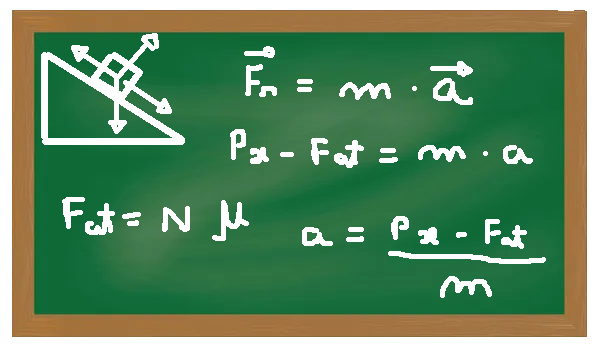 F⃗n = m · a⃗
Px - Fat = m · a
Fat = N μ
a = Px - Fat / m